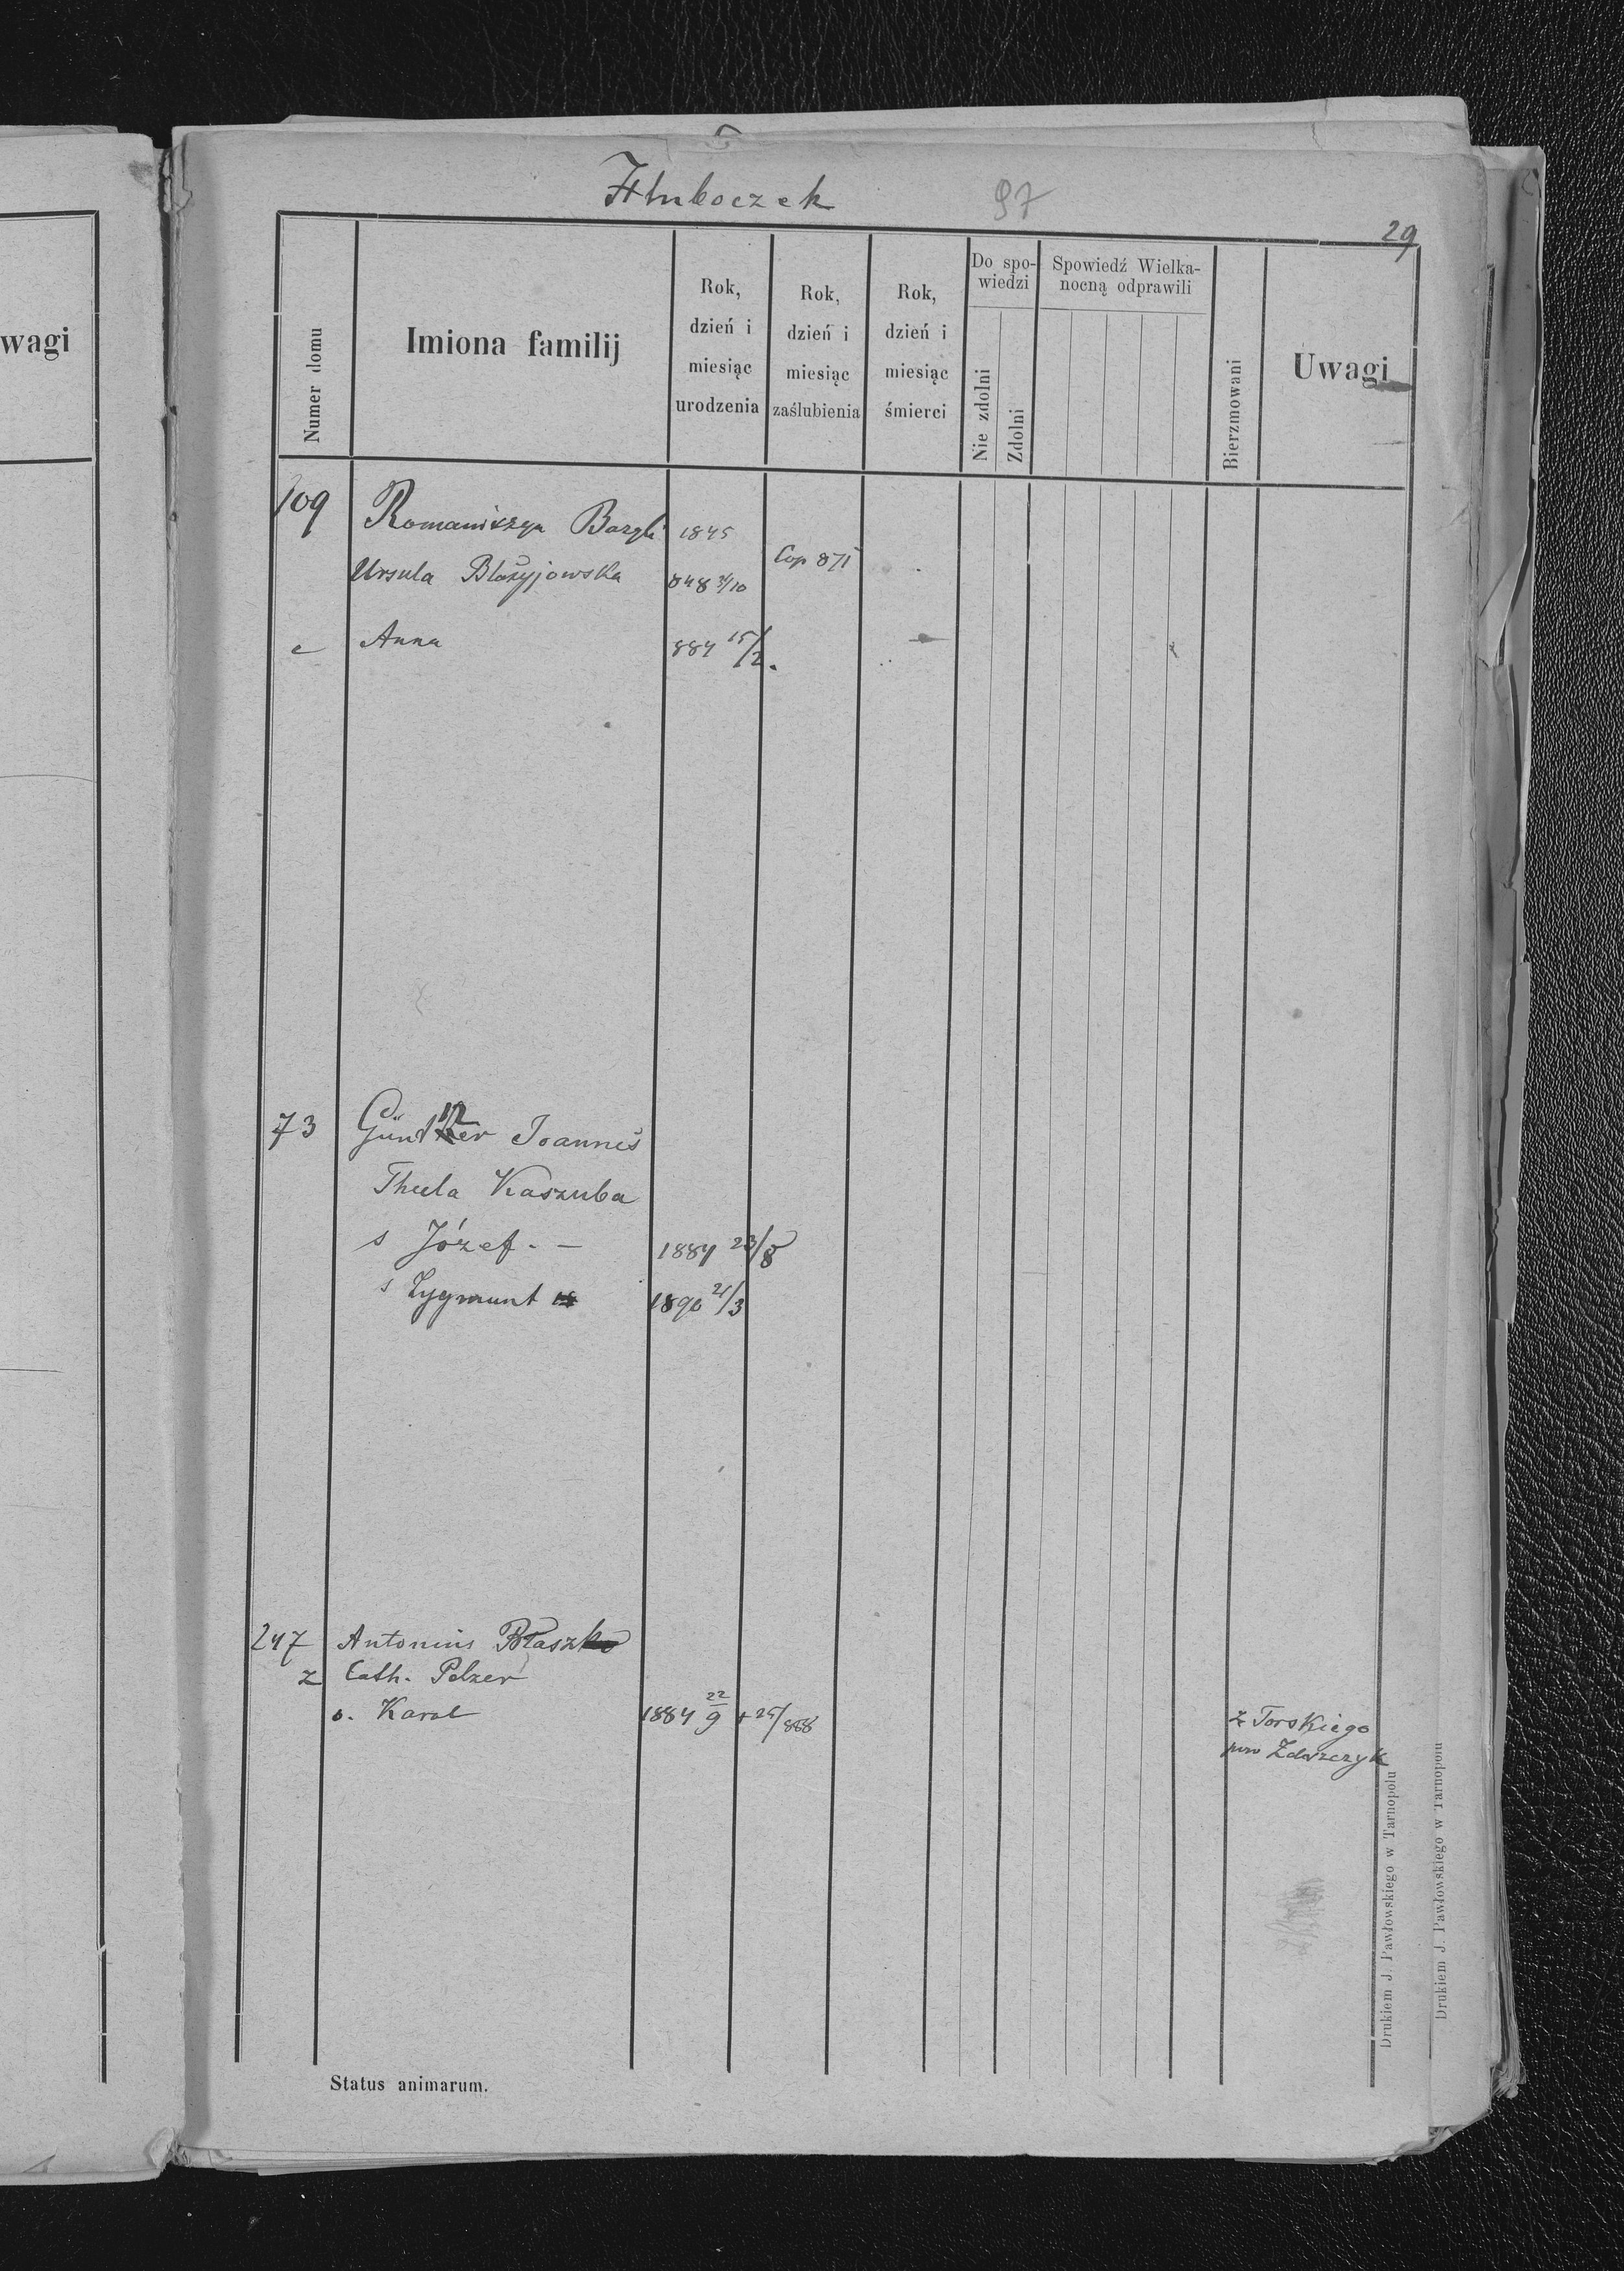 Hłuboczek 97
29
wagi
Numer domu
Imiona familij
Rok, dzień i miesiąc urodzenia
Rok, dzień i miesiąc zaślubienia
Rok, dzień i miesiąc śmierci
Do spo-
wiedzi
Nie zdolni
Zdolni
Spowiedź Wielka-
nocną odprawili
Bierzmowani
Uwagi
109 Romaniszyn Bazyli 1845
Ursula Błażyjowska 848 /10 Cop 871
c Anna 884 15/2.
73 Günther Joannes
Thecla Kaszuba
s Józef. – 1884 23/8
s Zygmunt 1890 21/3
247 Antonius Błaszko
z Cath. Pelzer
o. Karol 1884 22/9 + 25/888 z Torskiego
pow Zdaszczyk
Drukiem J. Pawłowskiego w Tarnopolu
Drukiem J. Pawłowskiego w Tarnopolu
Status animarum.